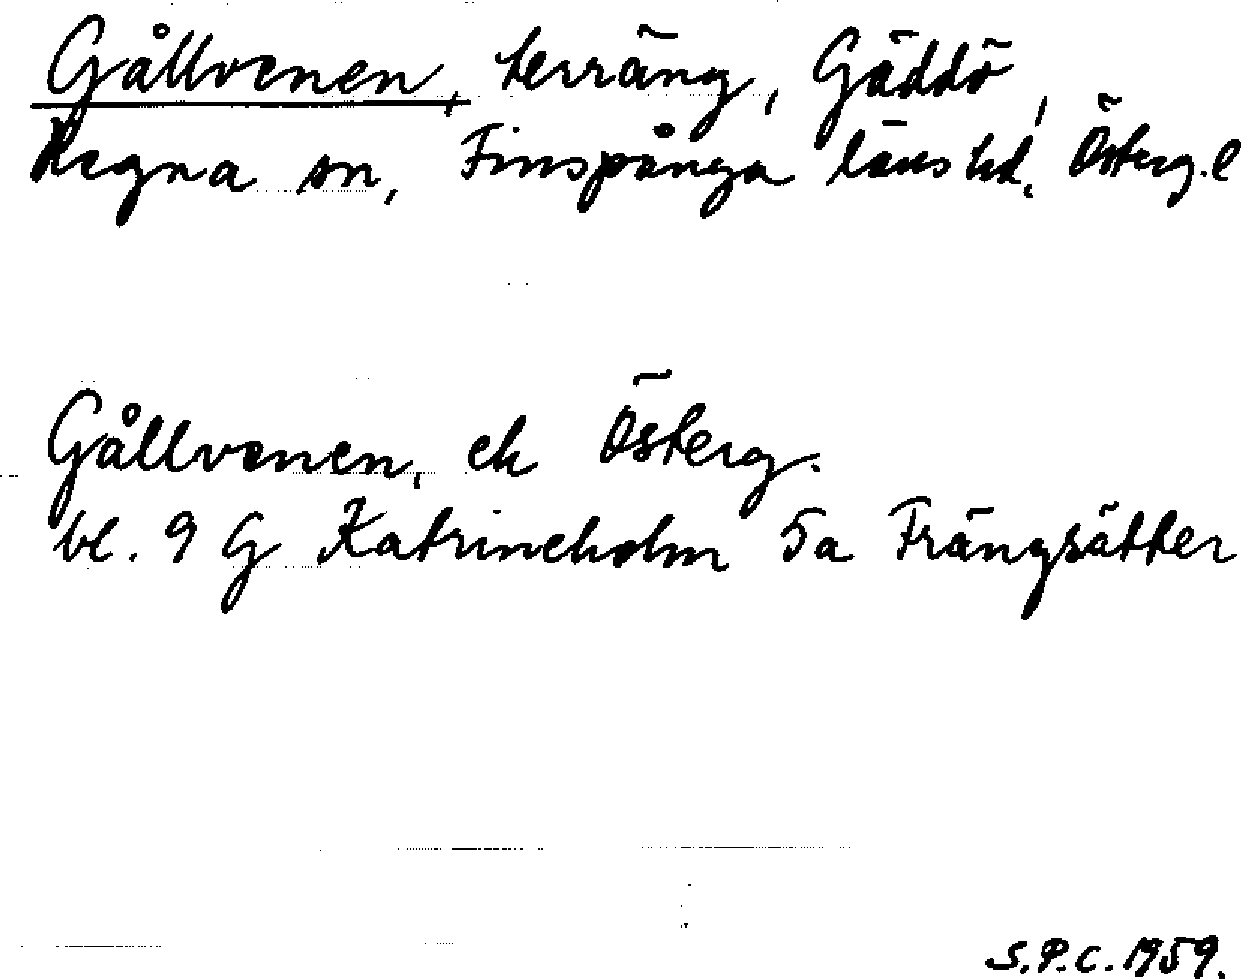 Gållvenen, terräng, Gäddö,
Regna sn, Finspånga länshd, Österg. l
Gållvenen, ek Österg.
bl. 9 G Katrineholm 5a Frängsätter
S.P.C. 1959.